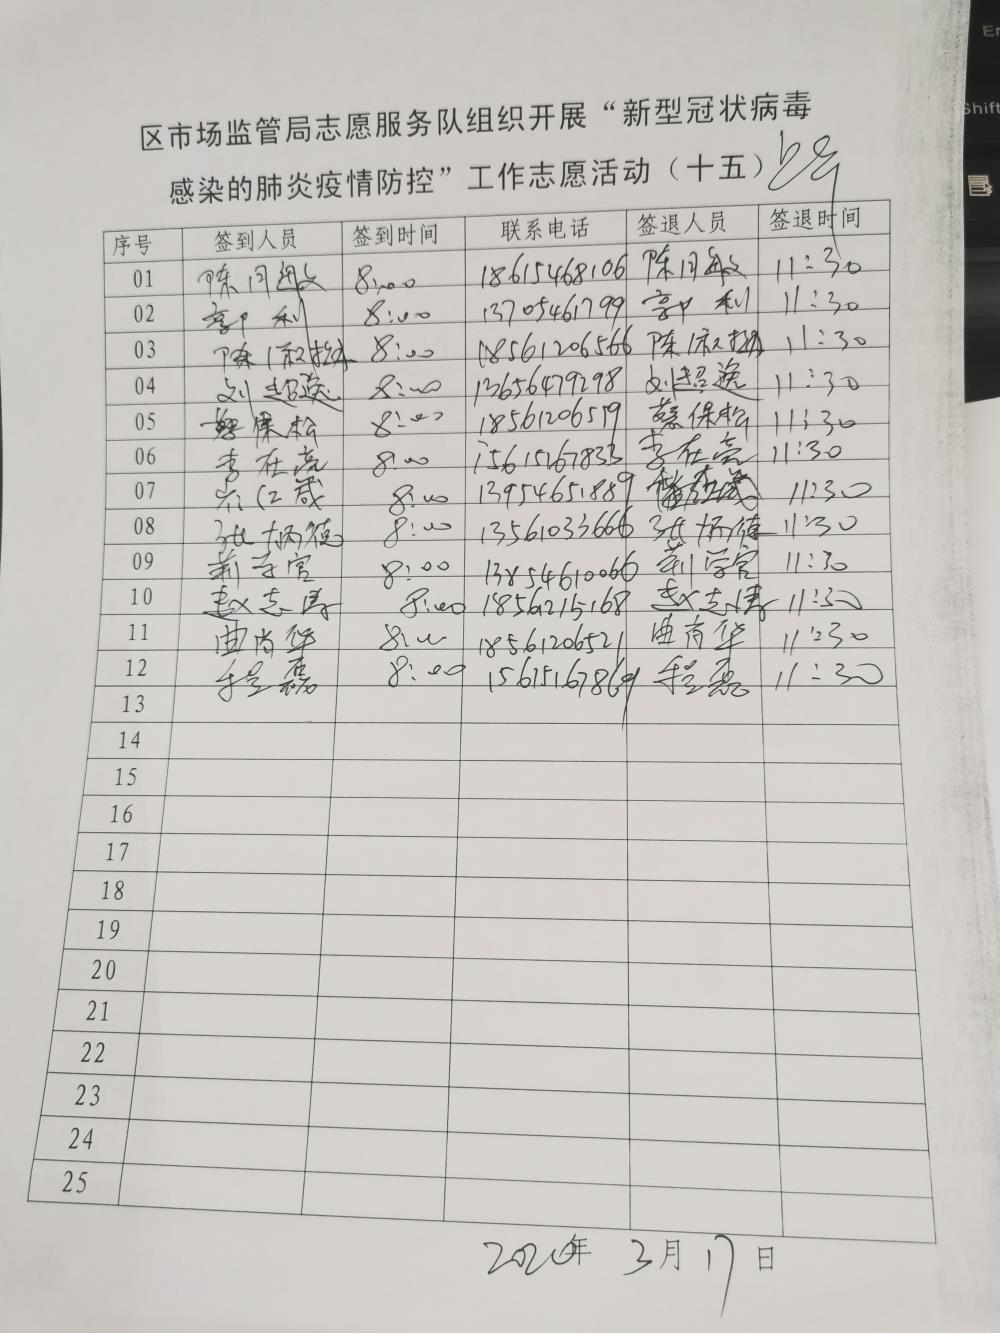 区市场监管局志愿服务队组织开展“新型冠状病毒
感染的肺炎疫情防控”工作志愿活动（十五）
序号 签到人员 签到时间 联系电话 签退人员 签退时间
01 陈月敏 8:00 18615468106 陈月敏 11:30
02 8:00 13705461799 11:30
03 8:00 18561206566 11:30
04 刘超逸 8:00 13656479298 刘超逸 11:30
05 蔡保松 8:00 18561206519 蔡保松 11:30
06 李在亮 8:00 15615167833 李在亮 11:30
07 8:00 13954651889 11:30
08 张炳德 8:00 13561033666 张炳德 11:30
09 荆学官 8:00 13854610066 荆学官 11:30
10 赵志涛 8:00 18561215168 赵志涛 11:30
11 曲尚华 8:00 18561206521 曲尚华 11:30
12 程磊 8:00 15615167869 程磊 11:30
13
14
15
16
17
18
19
20
21
22
23
24
25
2020年 3月 17日